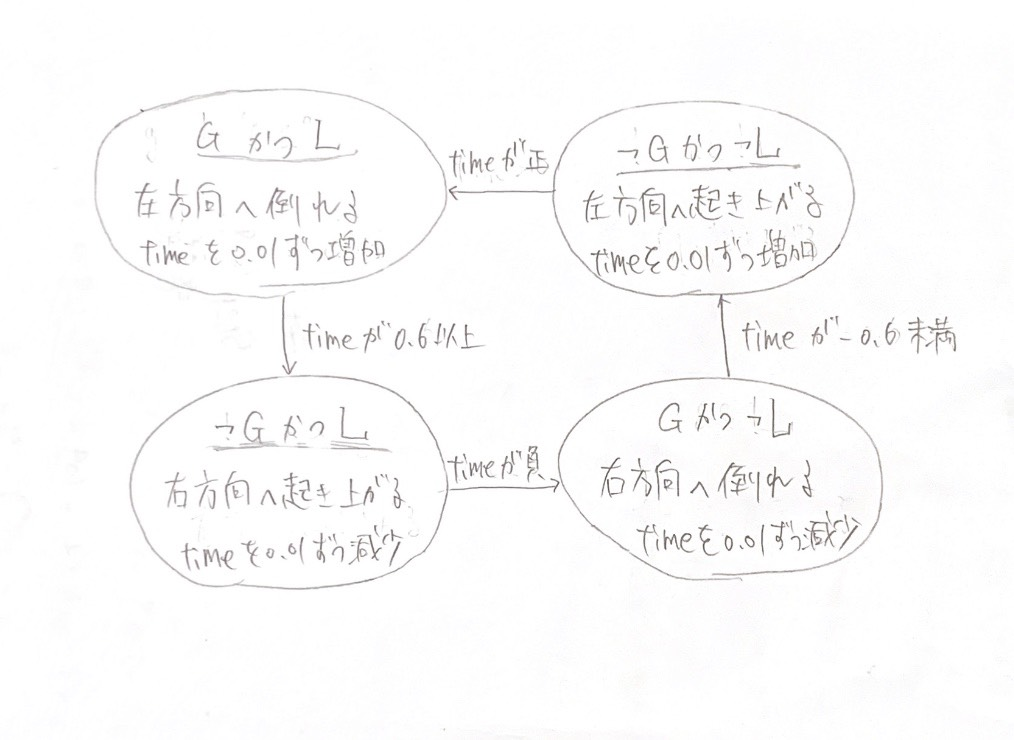 GかつL
左方向へ倒れる
timeを0.01ずつ増加
timeが正
¬Gかつ¬L
左方向へ起き上がる
timeを0.01ずつ増加
timeが0.6以上
timeが-0.6未満
¬GかつL
右方向へ起き上がる
timeを0.01ずつ減少
timeが負
Gかつ¬L
右方向へ倒れる
timeを0.01ずつ減少